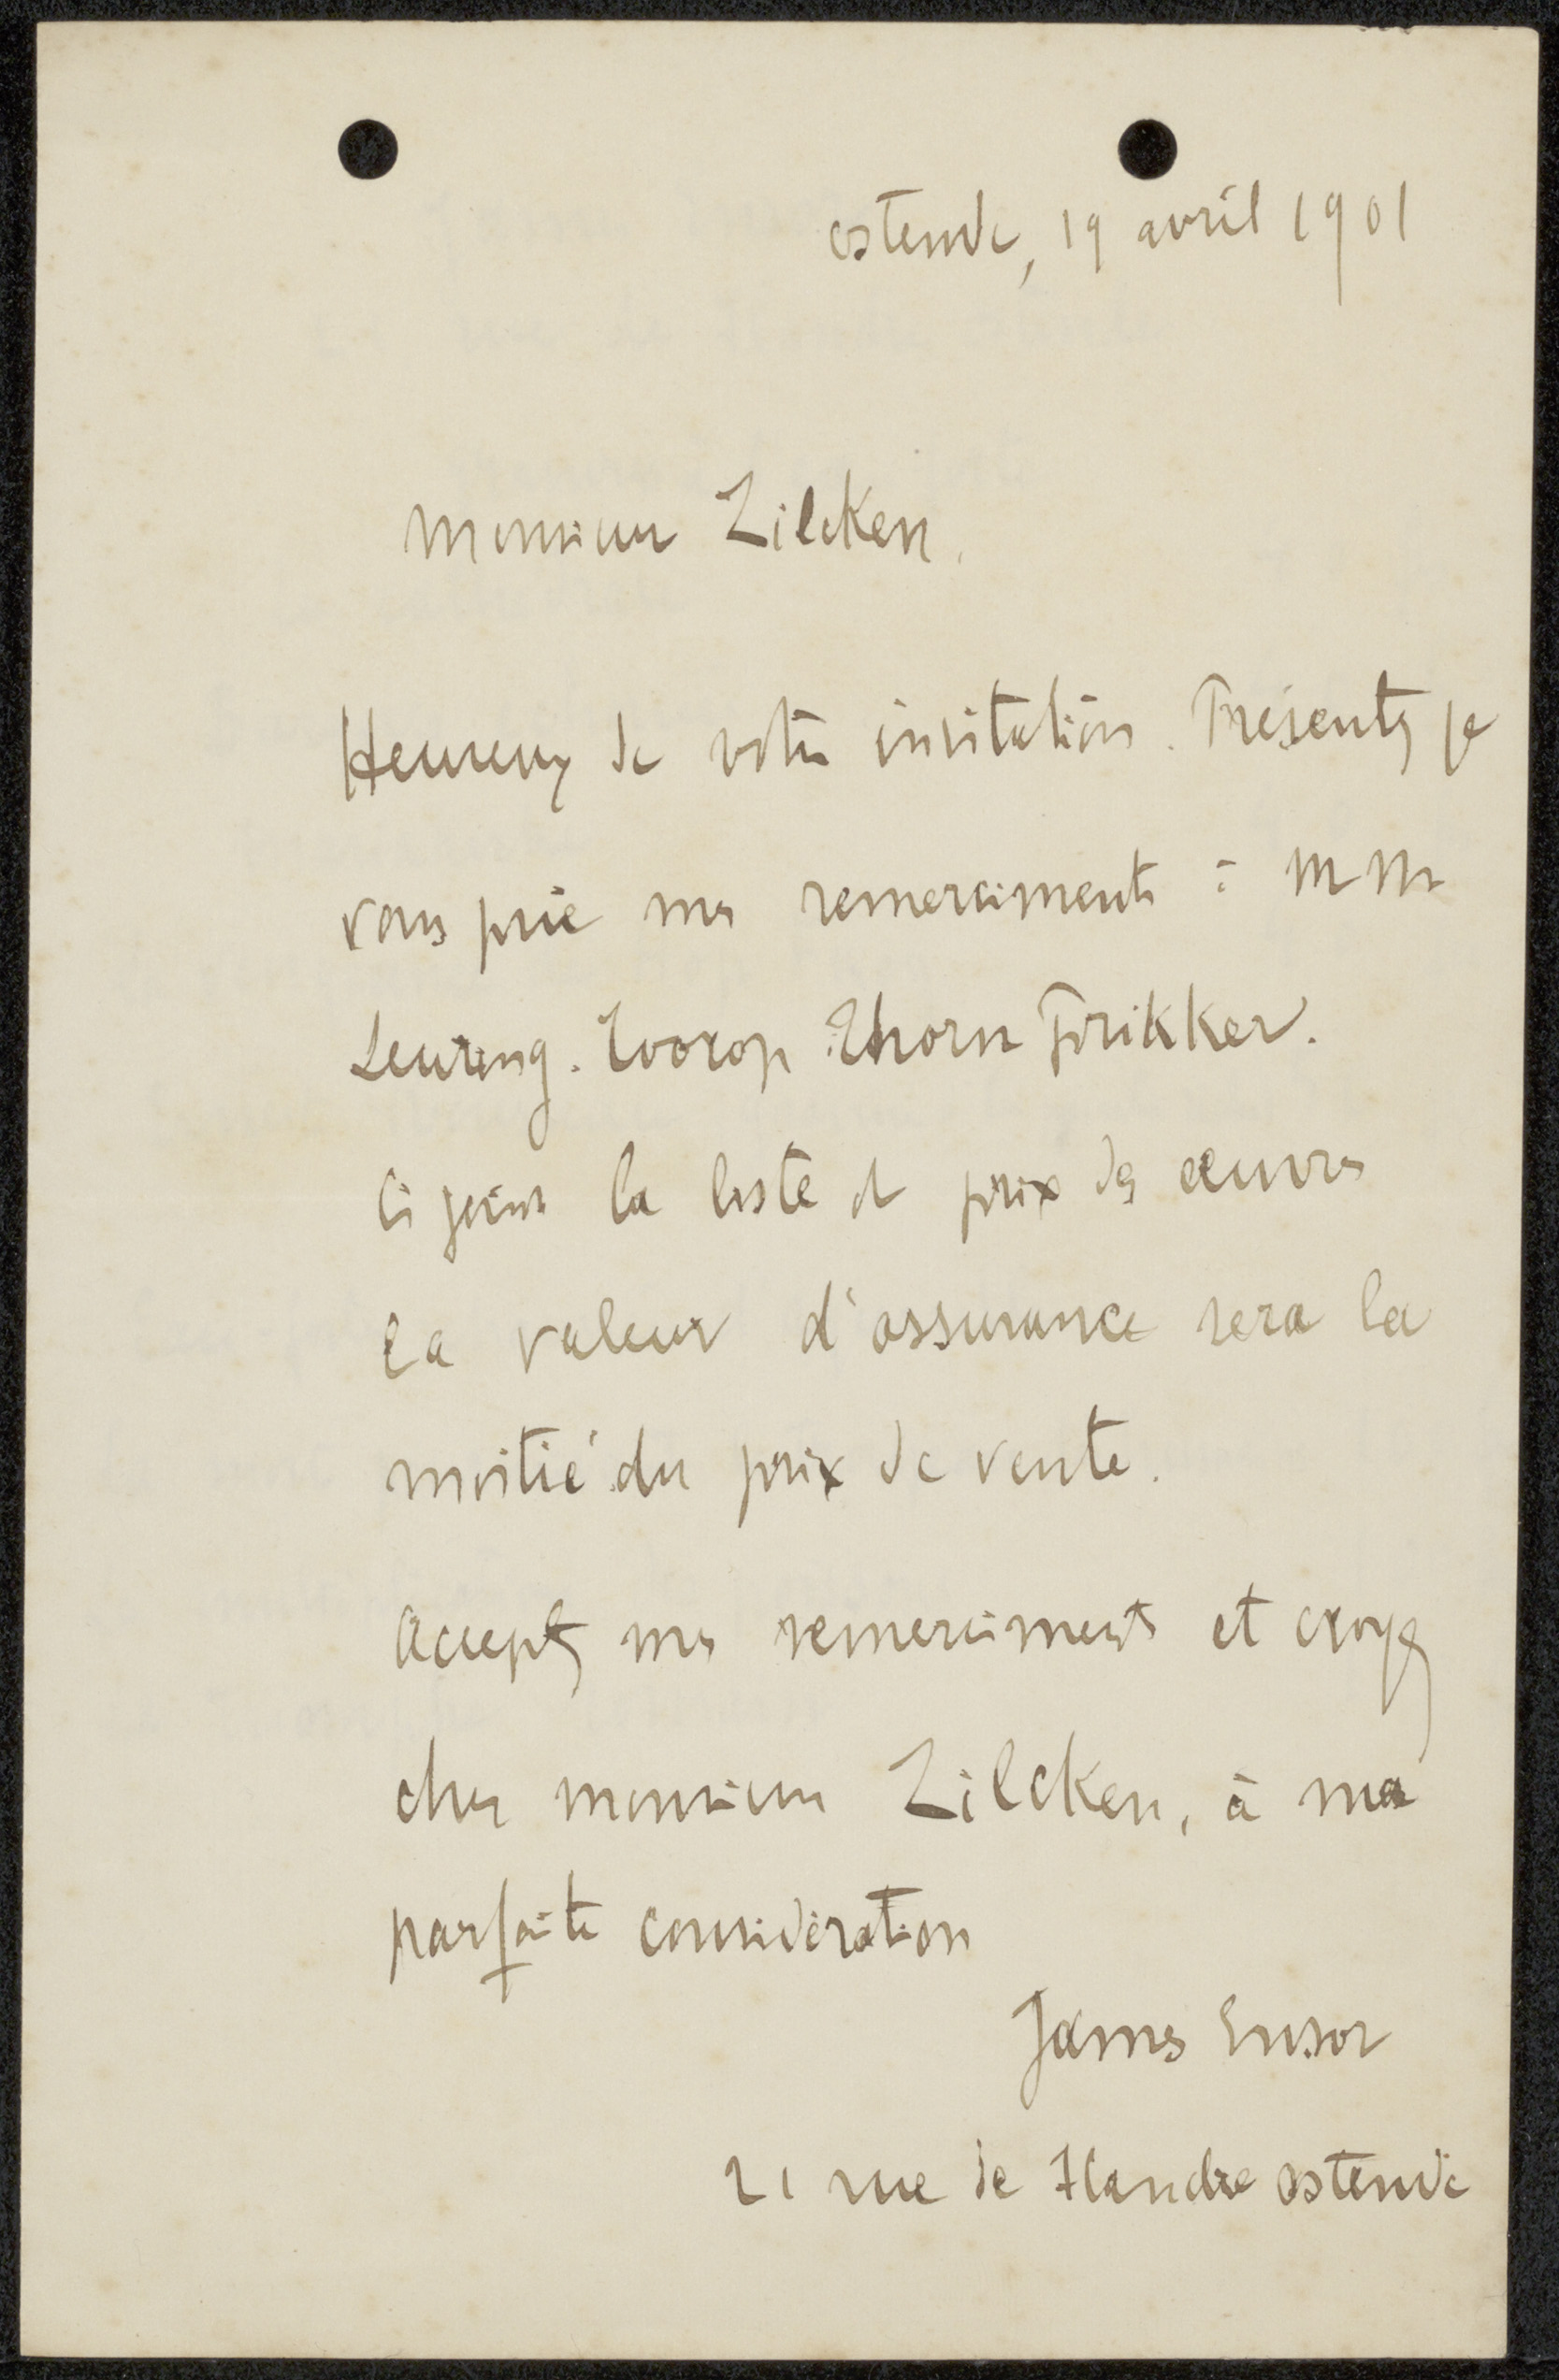 ostende, 19 avril 1901
Monsieur Zilcken.
Heureux de votre invitation. Présentez je
vous prie mes remerciments à MM
Leuring. Toorop Thorn Prikker.
Ci joint la liste et prix des œuvres
La valeur d'assurance sera la
moitié du prix de vente.
Acceptez mes remerciments et croyez
cher monsieur Zilcken, à ma
parfaite considération
James Ensor
21 rue de Flandre ostende